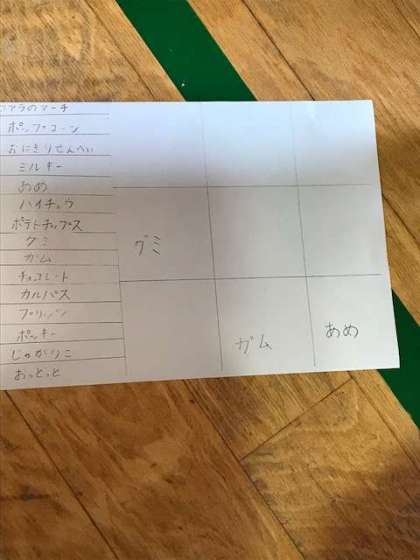 コアラのマーチ
ポップコーン
おにぎりせんべい
ミルキー
あめ
ハイチュウ
ポテトチップス
グミ
ガム
チョコレート
カルパス
プリッツ
ポッキー
じゃがりこ
おっとっと
グミ
ガム
あめ